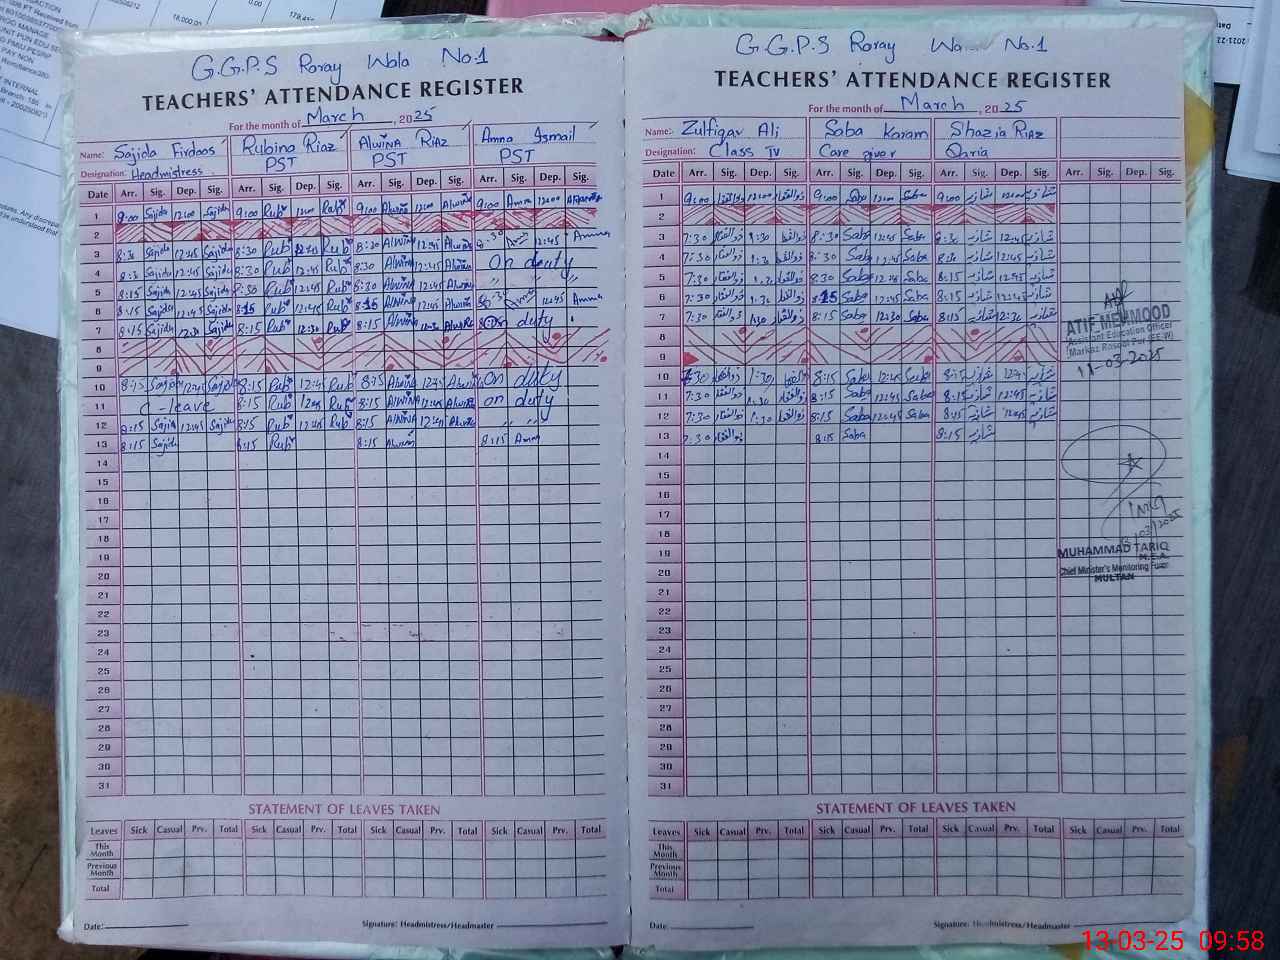 G.G.P.S Roray Wala No.1
TEACHERS' ATTENDANCE REGISTER
For the month of March, 2025
Name: Sajida Firdoos Rubina Riaz Alwina Riaz Amna Ismail
Designation: Headmistress PST PST PST
Date Arr. Sig. Dep. Sig. Arr. Sig. Dep. Sig. Arr. Sig. Dep. Sig. Arr. Sig. Dep. Sig.
1 9:00 Sajida 12:00 Sajida 9:00 Rub 12:00 Rub 9:00 Alwina 12:00 Alwina 9:00 Amna 12:00
2
3 8:30 Sajida 12:45 Sajida 8:30 Rub 12:45 Rub 8:30 Alwina 12:45 Alwina 8:30 12:45 Amna
4 8:30 Sajida 12:45 Sajida 8:30 Rub 12:45 Rub 8:30 Alwina 12:45 Alwina On duty
5 8:15 Sajida 12:45 Sajida 8:30 Rub 12:45 Rub 8:30 Alwina 12:45 Alwina " "
6 8:15 Sajida 12:45 Sajida 8:15 Rub 12:45 Rub 8:15 Alwina 12:45 Alwina 12:45 Amna
7 8:15 Sajida 12:30 Sajida 8:15 Rub 12:30 Rub 8:15 Alwina 12:30 Alwina On duty
8
9
10 8:15 Sajida 12:45 Sajida 8:15 Rub 12:45 Rub 8:15 Alwina 12:45 Alwina On duty
11 C-leave 8:15 Rub 12:45 Rub 8:15 Alwina 12:45 Alwina On duty
12 8:15 Sajida 12:45 Sajida 8:15 Rub 12:45 Rub 8:15 Alwina 12:45 Alwina " "
13 8:15 Sajida 8:15 Rub 8:15 Alwina 8:15 Amna
14
15
16
17
18
19
20
21
22
23
24
25
26
27
28
29
30
31
STATEMENT OF LEAVES TAKEN
Leaves Sick Casual Prv. Total Sick Casual Prv. Total Sick Casual Prv. Total Sick Casual Prv. Total
This Month
Previous Month
Total
Date: Signature: Headmistress/Headmaster
G.G.P.S Roray No.1
TEACHERS' ATTENDANCE REGISTER
For the month of March, 2025
Name: Zulfiqar Ali Saba Karam Shazia Riaz
Designation: Class IV Care giver Qaria
Date Arr. Sig. Dep. Sig. Arr. Sig. Dep. Sig. Arr. Sig. Dep. Sig. Arr. Sig. Dep. Sig.
1 9:00 ذوالفقار 12:00 ذوالفقار 9:00 Saba 12:00 Saba 9:00 شازیہ 12:00 شازیہ
2
3 7:30 ذوالفقار 1:30 ذوالفقار 8:30 Saba 12:45 Saba 8:30 شازیہ 12:45 شازیہ
4 7:30 ذوالفقار 1:30 ذوالفقار 8:30 Saba 12:45 Saba 8:30 شازیہ 12:45 شازیہ
5 7:30 ذوالفقار 1:30 ذوالفقار 8:30 Saba 12:45 Saba 8:15 شازیہ 12:45 شازیہ
6 7:30 ذوالفقار 1:30 ذوالفقار 8:15 Saba 12:45 Saba 8:15 شازیہ 12:45 شازیہ
7 7:30 ذوالفقار 1:30 ذوالفقار 8:15 Saba 12:30 Saba 8:15 شازیہ 12:30 شازیہ
8
9
10 7:30 ذوالفقار 1:30 ذوالفقار 8:15 Saba 12:45 Saba 8:15 شازیہ 12:45 شازیہ
11 7:30 ذوالفقار 1:30 ذوالفقار 8:15 Saba 12:45 Saba 8:15 شازیہ 12:45 شازیہ
12 7:30 ذوالفقار 1:30 ذوالفقار 8:15 Saba 12:45 Saba 8:15 شازیہ 12:45 شازیہ
13 7:30 ذوالفقار 8:15 Saba 8:15 شازیہ
14
15
16
17
18
19
20
21
22
23
24
25
26
27
28
29
30
31
ATIF MEHMOOD
Assistant Education Officer
11-03-2025
13/03/2025
MUHAMMAD TARIQ
M.E.A.
Chief Minister's Monitoring Force
MULTAN
STATEMENT OF LEAVES TAKEN
Leaves Sick Casual Prv. Total Sick Casual Prv. Total Sick Casual Prv. Total Sick Casual Prv. Total
This Month
Previous Month
Total
Date: Signature: Headmistress/Headmaster
13-03-25 09:58